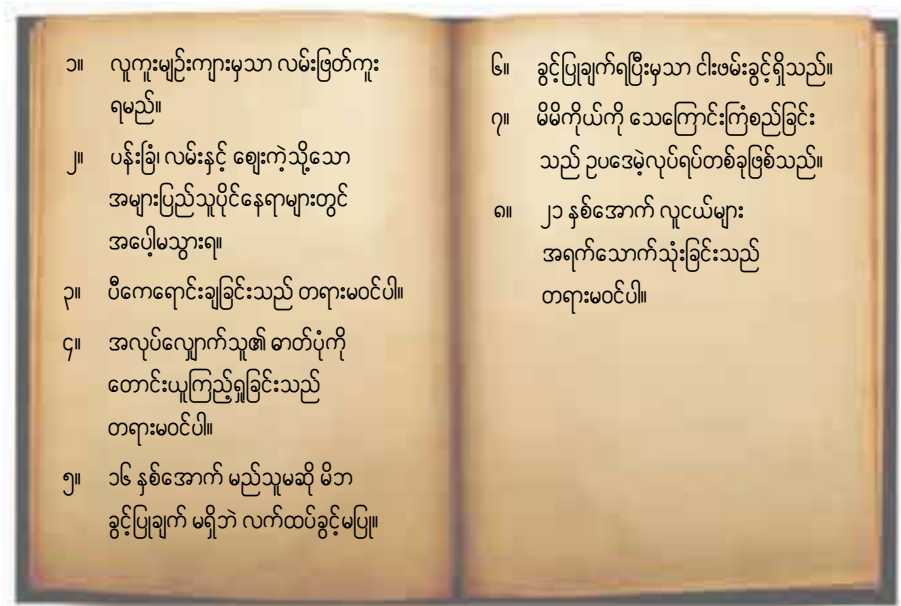 ၁။ လူကူးမျဉ်းကျားမှသာ လမ်းဖြတ်ကူး
ရမည်။
၂။ ပန်းခြံ၊ လမ်းနှင့် ဈေးကဲ့သို့သော
အများပြည်သူပိုင်နေရာများတွင်
အပေါ့မသွားရ။
၃။ ပီကေရောင်းချခြင်းသည် တရားမဝင်ပါ။
၄။ အလုပ်လျှောက်သူ၏ ဓာတ်ပုံကို
တောင်းယူကြည့်ရှုခြင်းသည်
တရားမဝင်ပါ။
၅။ ၁၆ နှစ်အောက် မည်သူမဆို မိဘ
ခွင့်ပြုချက် မရှိဘဲ လက်ထပ်ခွင့်မပြု။
၆။ ခွင့်ပြုချက်ရပြီးမှသာ ငါးဖမ်းခွင့်ရှိသည်။
၇။ မိမိကိုယ်ကို သေကြောင်းကြံစည်ခြင်း
သည် ဥပဒေမဲ့လုပ်ရပ်တစ်ခုဖြစ်သည်။
၈။ ၂၁ နှစ်အောက် လူငယ်များ
အရက်သောက်သုံးခြင်းသည်
တရားမဝင်ပါ။